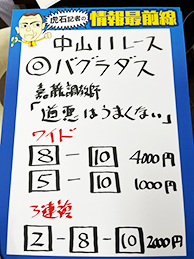 虎石記者の
情報最前線
中山11レース
◎バグラダス
嘉藤調教師
「道悪はうまくない」
ワイド
8-10 4000円
5-10 1000円
3連複
2-8-10 2000円